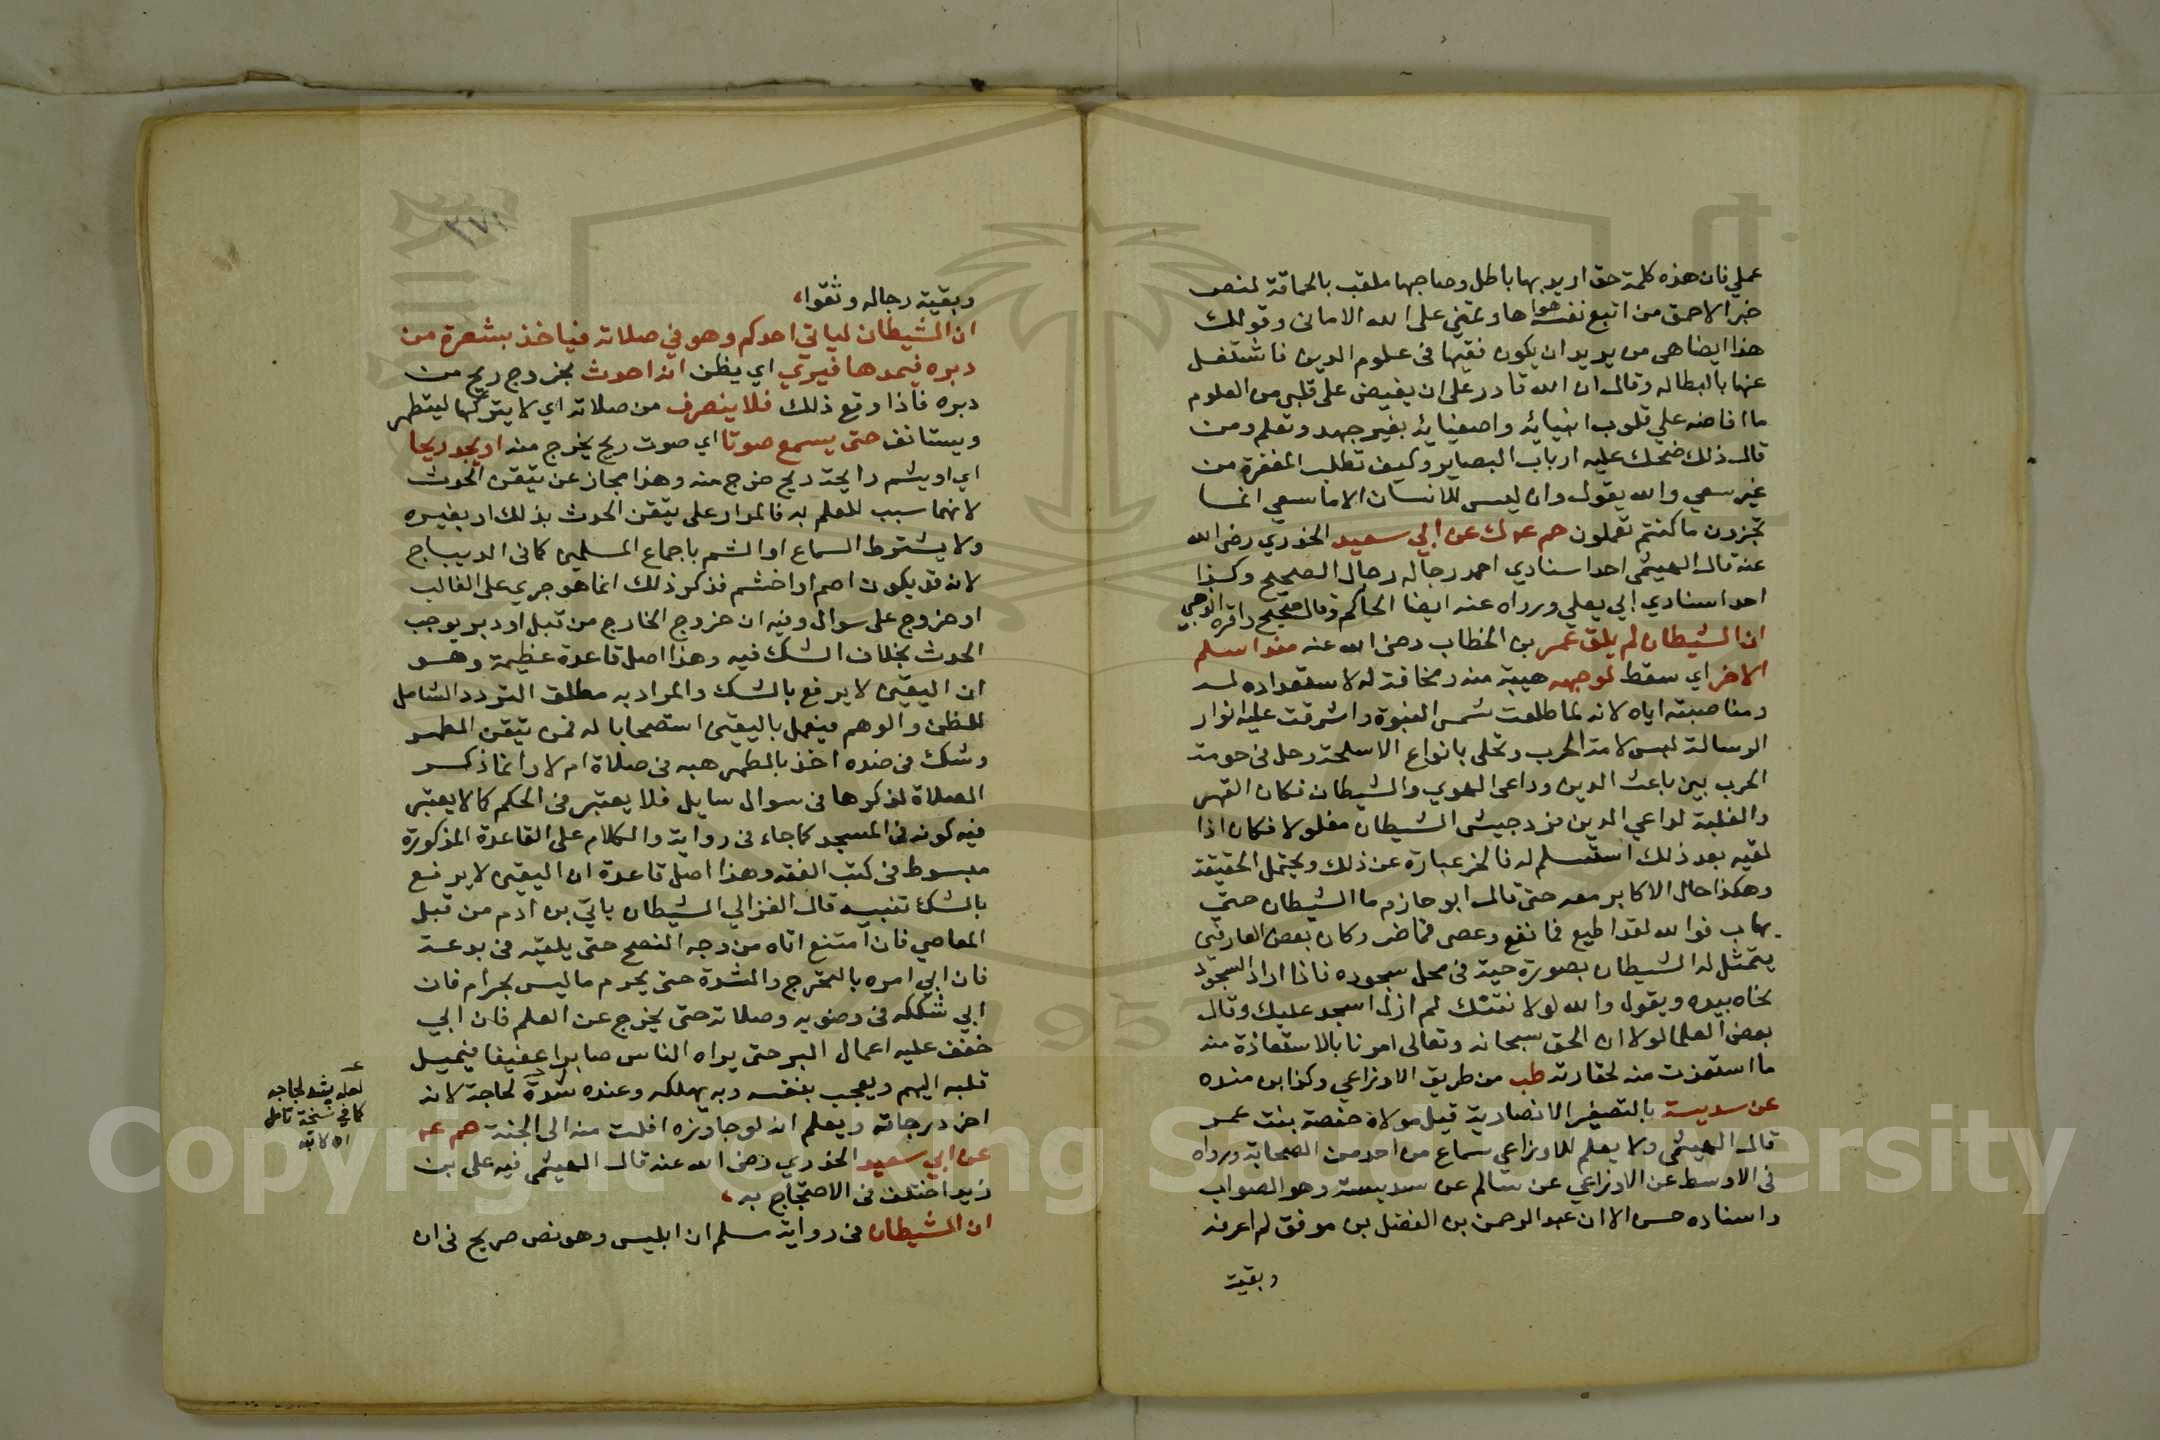 عملي فان هذه كلمة حق اريد بها باطل وصاحبها ملقب بالحماقة لنص
خبر الاحمق من اتبع نفسه هواها وتمنى على الله الامانى وقولك
هذا ايضاهى من يريد ان يكون فقيها فى علوم الدين فاشتغل
عنها بالبطاله وقال ان الله قادر على ان يفيض على قلبى من العلوم
ما افاضه على قلوب انبيائه واصفيائه بغير جهد وتعلم ومن
قال ذلك ضحك عليه ارباب البصاير وكيف تطلب المغفرة من
غير سعي والله يقول وان ليس للانسان الا ما سعي انما
تجزون ما كنتم تعملون حم ع ك عن ابي سعيد الخدري رضى الله
عنه قال الهيثمى احد اسنادي احمد رجاله رجال الصحيح وكذا
احد اسنادي ابي يعلي ورواه عنه ايضا الحاكم وقال صحيح واقره الذهبي
ان الشيطان لم يلق عمر بن الخطاب رضى الله عنه منذ اسلم
الا خر اي سقط لوجهه هيبة منه ومخافة له لاستعداده لـه
ومناصبته اياه لانه لما طلعت شمس النبوة واشرقت عليه انوار
الرسالة لبس لامة الحرب وتحلى بانواع الاسلحة وحل فى حومة
الحرب بين باعث الدين وداعى الهوي والشيطان فكان القهر
والغلبة لداعي الدين فرد جيش الشيطان مغلولا فكان اذا
لقيه بعد ذلك استسلم له فالخر عبارة عن ذلك ويحتمل الحقيقة
وهكذا حال الاكابر معه حتى قال ابو حازم ما الشيطان حتى
يهاب فوالله لقد اطيع فما نفع وعصى فما ضر وكان بعض العارفين
يتمثل له الشيطان بصورة حية فى محل سجوده فاذا اراد السجود
نحاه بيده ويقول والله لولا نتنك لم ازل اسجد عليك وقال
بعض العلما لولا ان الحق سبحانه وتعالى امرنا بالاستعاذة منه
ما استعذت منه لحقارته طب من طريق الاوزاعي وكذا بن منده
عن سديسة بالتصغير الانصارية قيل مولاة حفصة بنت عمر
قال الهيثمى ولا يعلم للاوزاعي سماع من احد من الصحابة ورواه
فى الاوسط عن الاوزاعي عن سالم عن سديسة وهو الصواب
واسناده حسن الا ان عبد الرحمن بن الفضل بن موفق لم اعرفه
وبقية
٢٧١
وبقية رجاله وثقوا
ان الشيطان لياتي احدكم وهو في صلاته فياخذ بشعرة من
دبره فيمدها فيري اي يظن انه احدث بخروج ريح من
دبره فاذا وقع ذلك فلا ينصرف من صلاته اي لا يتركها ليتطهر
ويستانف حتى يسمع صوتا اي صوت ريح يخرج منه او يجد ريحا
اي او يشم رايحة ريح خرج منه وهذا مجاز عن تيقن الحدث
لانهما سبب للعلم به فالمدار على تيقن الحدث بذلك او بغيره
ولا يشترط السماع او الشم باجماع المسلمين كما فى الديباج
لانه قد يكون اصم او اخشم فذكر ذلك انما هو جري على الغالب
او خروج على سوال وفيه ان خروج الخارج من قبل او دبر يوجب
الحدث بخلاف الشك فيه وهذا اصل قاعدة عظيمة وهو
ان اليقين لا يرفع بالشك والمراد به مطلق التردد الشامل
للظن والوهم فيعمل باليقين استصحابا له فمن تيقن الطهر
وشك فى ضده اخذ بالطهر هبه فى صلاة ام لا وانما ذكر
الصلاة لذكرها فى سوال سايل فلا يعتبر فى الحكم كما لا يعتبر
فيه كونه فى المسجد كما جاء فى رواية والكلام على القاعدة المذكورة
مبسوط فى كتب الفقه وهذا اصل قاعدة ان اليقين لا يرفع
بالشك تنبيه قال الغزالي الشيطان ياتي بن ادم من قبل
المعاصي فان امتنع اتاه من وجه النصح حتى يلقيه فى بدعة
فان ابي امره بالتحرج والشدة حتى يحرم ما ليس بحرام فان
ابي شككه فى وضويه وصلاته حتى يخرج عن العلم فان ابي
خفف عليه اعمال البر حتى يراه الناس صابرا عفيفا فيميل
قلبه اليهم ويعجب بنفسه وبه يهلكه وعنده شدة لحاجة لانه
اخر درجاته ويعلم انه لو جاوزه افلت منه الى الجنة حم ع
عن ابي سعيد الخدري رضى الله عنه قال الهيثمى فيه على بن
زيد اختلف فى الاحتجاج به
ان الشيطان فى رواية مسلم ان ابليس وهو نص صريح فى ان
لعله يشد لجاجه
كما في نسخة تامل